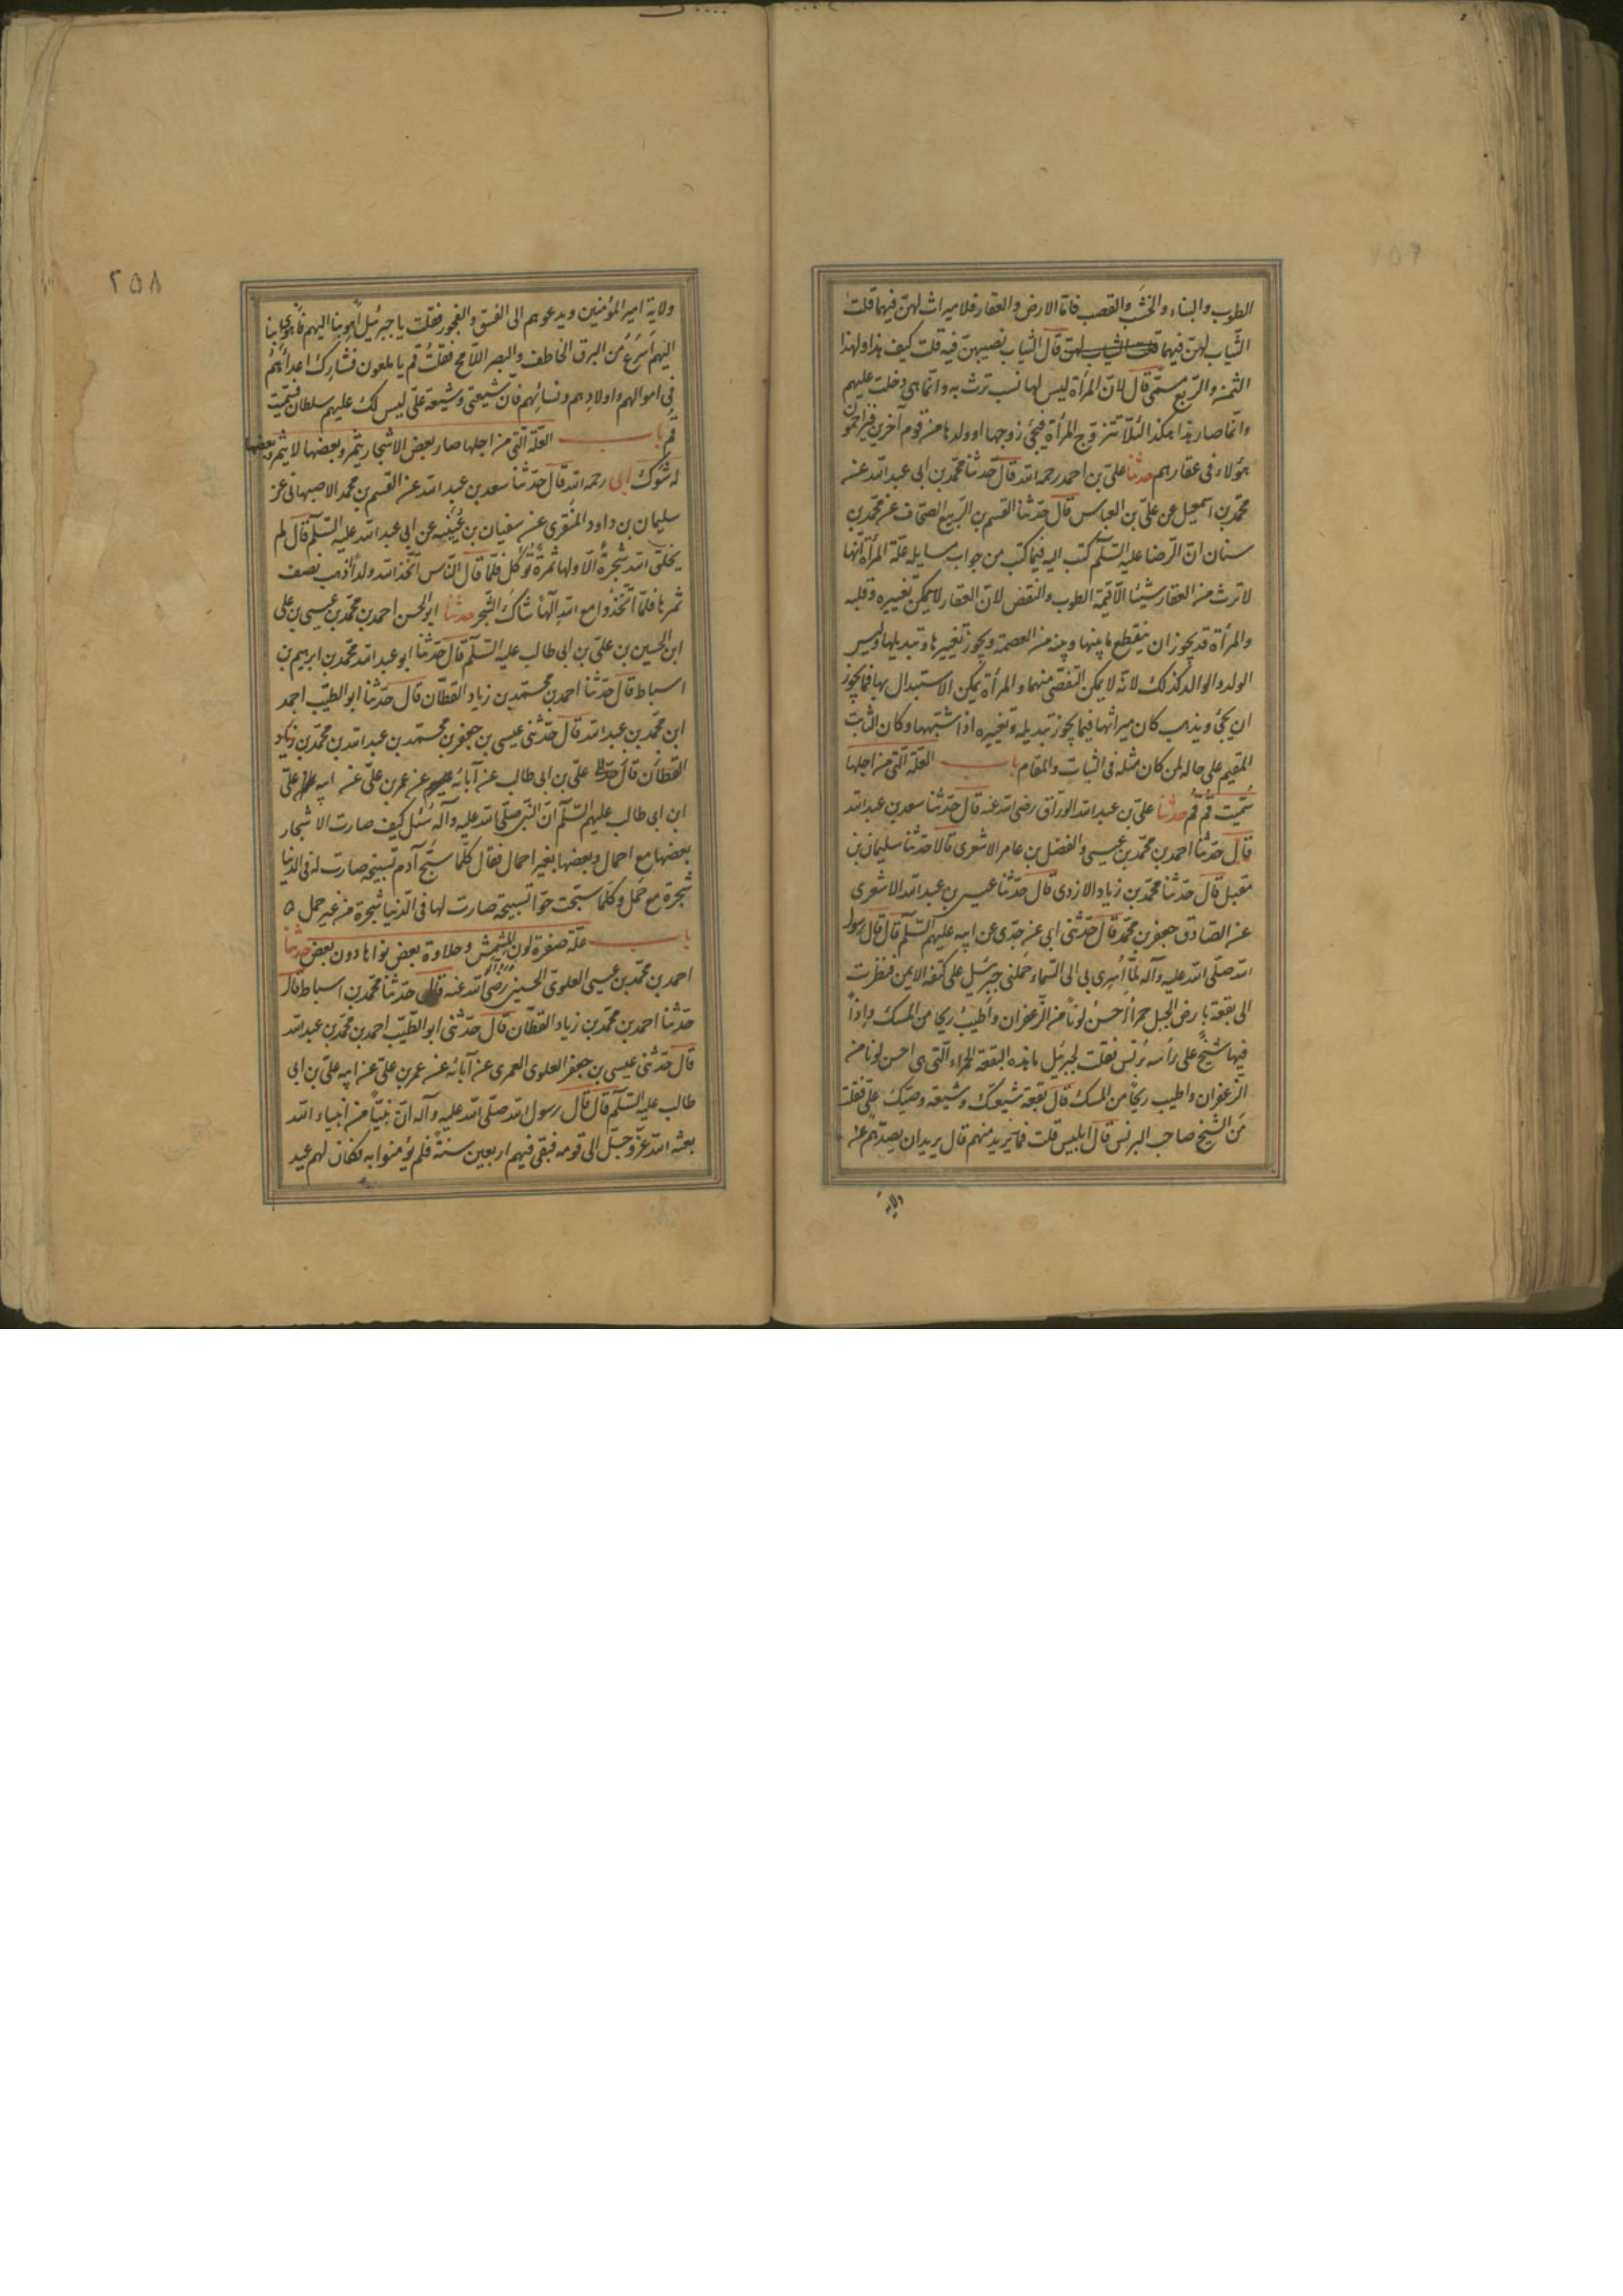 الطوب والبناء والخشب والقصب فامّا الارض والعقار فلا ميراث لهنّ فيها قلت
الثياب لهنّ فيها قال الثياب نصيبهنّ فيه قلت كيف هذا ولهذا
الثمن والربع مسمّى قال لانّ المرأة ليس لها نسب ترث به وانّما هى دخلت عليهم
وانّما صار هذا هكذا لئلّا تتزوج المرأة فيجئ زوجها او ولدها من قوم آخرين فيزاحمون
هؤلاء فى عقارهم حدثنا علىّ بن احمد رحمه الله قال حدّثنا محمّد بن ابى عبد الله عن
محمّد بن اسمعيل عن علىّ بن العباس قال حدّثنا القسم بن الرّبيع الصحّاف عن محمّد بن
سنان انّ الرّضا عليه السّلم كتب اليه فيما كتب من جواب مسايله علّة المرأة انّها
لا ترث من العقار شيئا الّا قيمة الطوب والنقض لانّ العقار لا يمكن تغييره وقلبه
والمرأة قد يجوز ان ينقطع ما بينها وبينه من العصمة ويجوز تغييرها وتبديلها وليس
الولد والوالد كذلك لانّه لا يمكن التفصّى منهما والمرأة يمكن الاستبدال بها فما يجوز
ان يجئ ويذهب كان ميراثها فيما يجوز تبديله وتغييره اذا شبهها وكان الثابت
المقيم على حاله لمن كان مثله فى الثبات والمقام باب العلّة الّتى من اجلها
سمّيت قم قم حدثنا علىّ بن عبد الله الورّاق رضى الله عنه قال حدّثنا سعد بن عبد الله
قال حدّثنا احمد بن محمّد بن عيسى والفضل بن عامر الاشعرى قالا حدّثنا سليمان بن
مقبل قال حدّثنا محمّد بن زياد الازدى قال حدّثنا عيسى بن عبد الله الاشعرى
عن الصّادق جعفر بن محمّد قال حدّثنى ابى عن جدّى عن ابيه عليهم السّلم قال قال رسول
الله صلّى الله عليه وآله لمّا اُسرى بى الى السّماء حَملنى جبرئيل على كتفه الايمن فنظرت
الى بقعة بارض الجبل حمراء اَحسن لوناً من الزّعفران واَطيب ريحا من المسك واِذاً
فيها شيخ على رأسه بُرنس فقلت لجبرئيل ما هذه البقعة الحمراء الّتى هى احسن لونا من
الزّعفران واطيب ريحاً من المسك قال بقعة شيعتك وشيعة وصيّك علىّ فقلت
مَن الشيخ صاحب البرنس قال ابليس قلت فما يريد منهم قال يريد ان يصدّهم عن
ولاية
٢٥٨
ولاية امير المؤمنين ويدعوهم الى الفسق والفجور فقلت يا جبرئيل اَهوِ بنا اليهم فاَهوى بنا
اليهم اَسرَعُ من البرق الخاطف والبصر اللّامح فقلتُ قم يا ملعون فشارِك اعدائهم
فى اموالهم واولادهم ونسائهم فانّ شيعتى وشيعة علىّ ليس لك عليهم سلطان فسمّيت
قُم باب العلّة الّتى من اجلها صار بعض الاشجار يثمر وبعضها لا يثمر وبعضها
له شَوك ابى رحمه الله قال حدّثنا سعد بن عبد الله عن القسم بن محمد الاصبهانى عن
سليمان بن داود المنقرى عن سفيان بن عُيَينه عن ابى عبد الله عليه السّلم قال لم
يخلق الله شجرةً الّا ولها ثمرةٌ تُؤكل فلمّا قال النّاس اتّخذ الله ولداً اذهب نصف
ثمرها فلمّا اتّخذوا مع الله اِلهاً شاكَ الشّجر حدثنا ابو الحسن احمد بن محمّد بن عيسى بن على
ابن الحسين بن علىّ بن ابى طالب عليه السّلم قال حدّثنا ابو عبد الله محمّد بن ابرهيم بن
اسباط قال حدّثنا احمد بن محمّد بن زياد القطّان قال حدّثنا ابو الطيّب احمد
ابن محمّد بن عبد الله قال حدّثنى عيسى بن جعفر بن محمّد بن عبد الله بن محمّد بن
علىّ بن ابى طالب عن آبائه عن عمر بن علىّ عن ابيه علىّ
ابن ابى طالب عليهم السّلم انّ النّبى صلّى الله عليه وآله سُئل كيف صارت الاشجار
بعضها مع احمال وبعضها بغير احمال فقال كلّما سبّح آدم تسبيحة صارت له فى الدنيا
شجرة مع حَمل وكلّما سبّحت حوّا تسبيحة صارت لها فى الدّنيا شجرة من غير حمل ٥
باب علّة صفرة لون المشمش وحلاوة بعض نواها دون بعض حدثنا
احمد بن محمّد بن عيسى العلوىّ الحسينى رضى الله عنه قال حدّثنا محمّد بن اسباط قال
حدّثنا احمد بن محمّد بن زياد القطّان قال حدّثنى ابو الطّيّب احمد بن محمّد بن عبد الله
قال حدّثنى عيسى بن جعفر العلوى العمرى عن آبائه عن عمر بن علىّ عن ابيه علىّ بن ابى
طالب عليه السّلم قال قال رسول الله صلّى الله عليه وآله انّ نبيّاً من انبياء الله
بعثه الله عزّوجلّ الى قومه فبقى فيهم اربعين سنةً فلم يؤمنوا به فكان لهم عيد